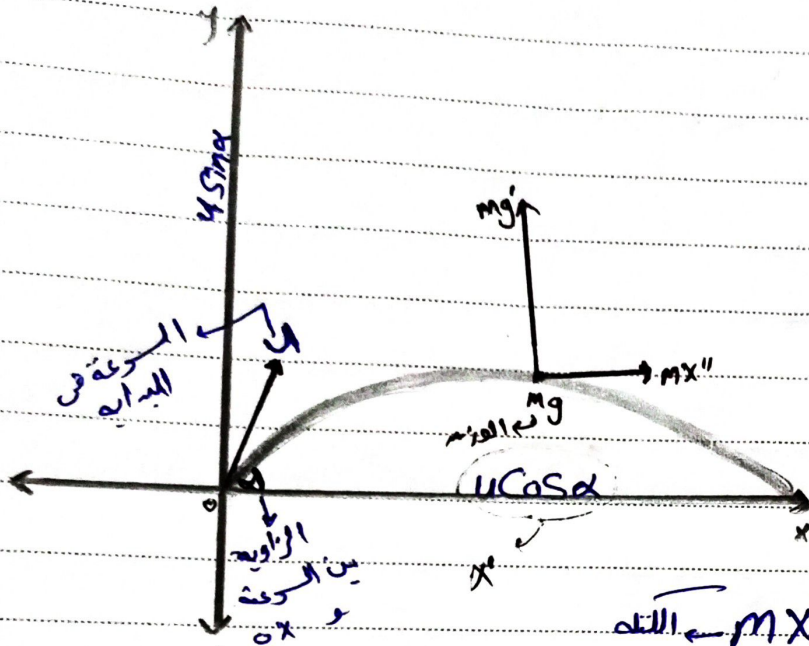 y
u Sinα
mg'
السرعة في
البدايه
u
mx"
mg
الوزن
o
u Cosα
x
الزاويه
بين السرعة
و
ox
x'
الكتله ← mx